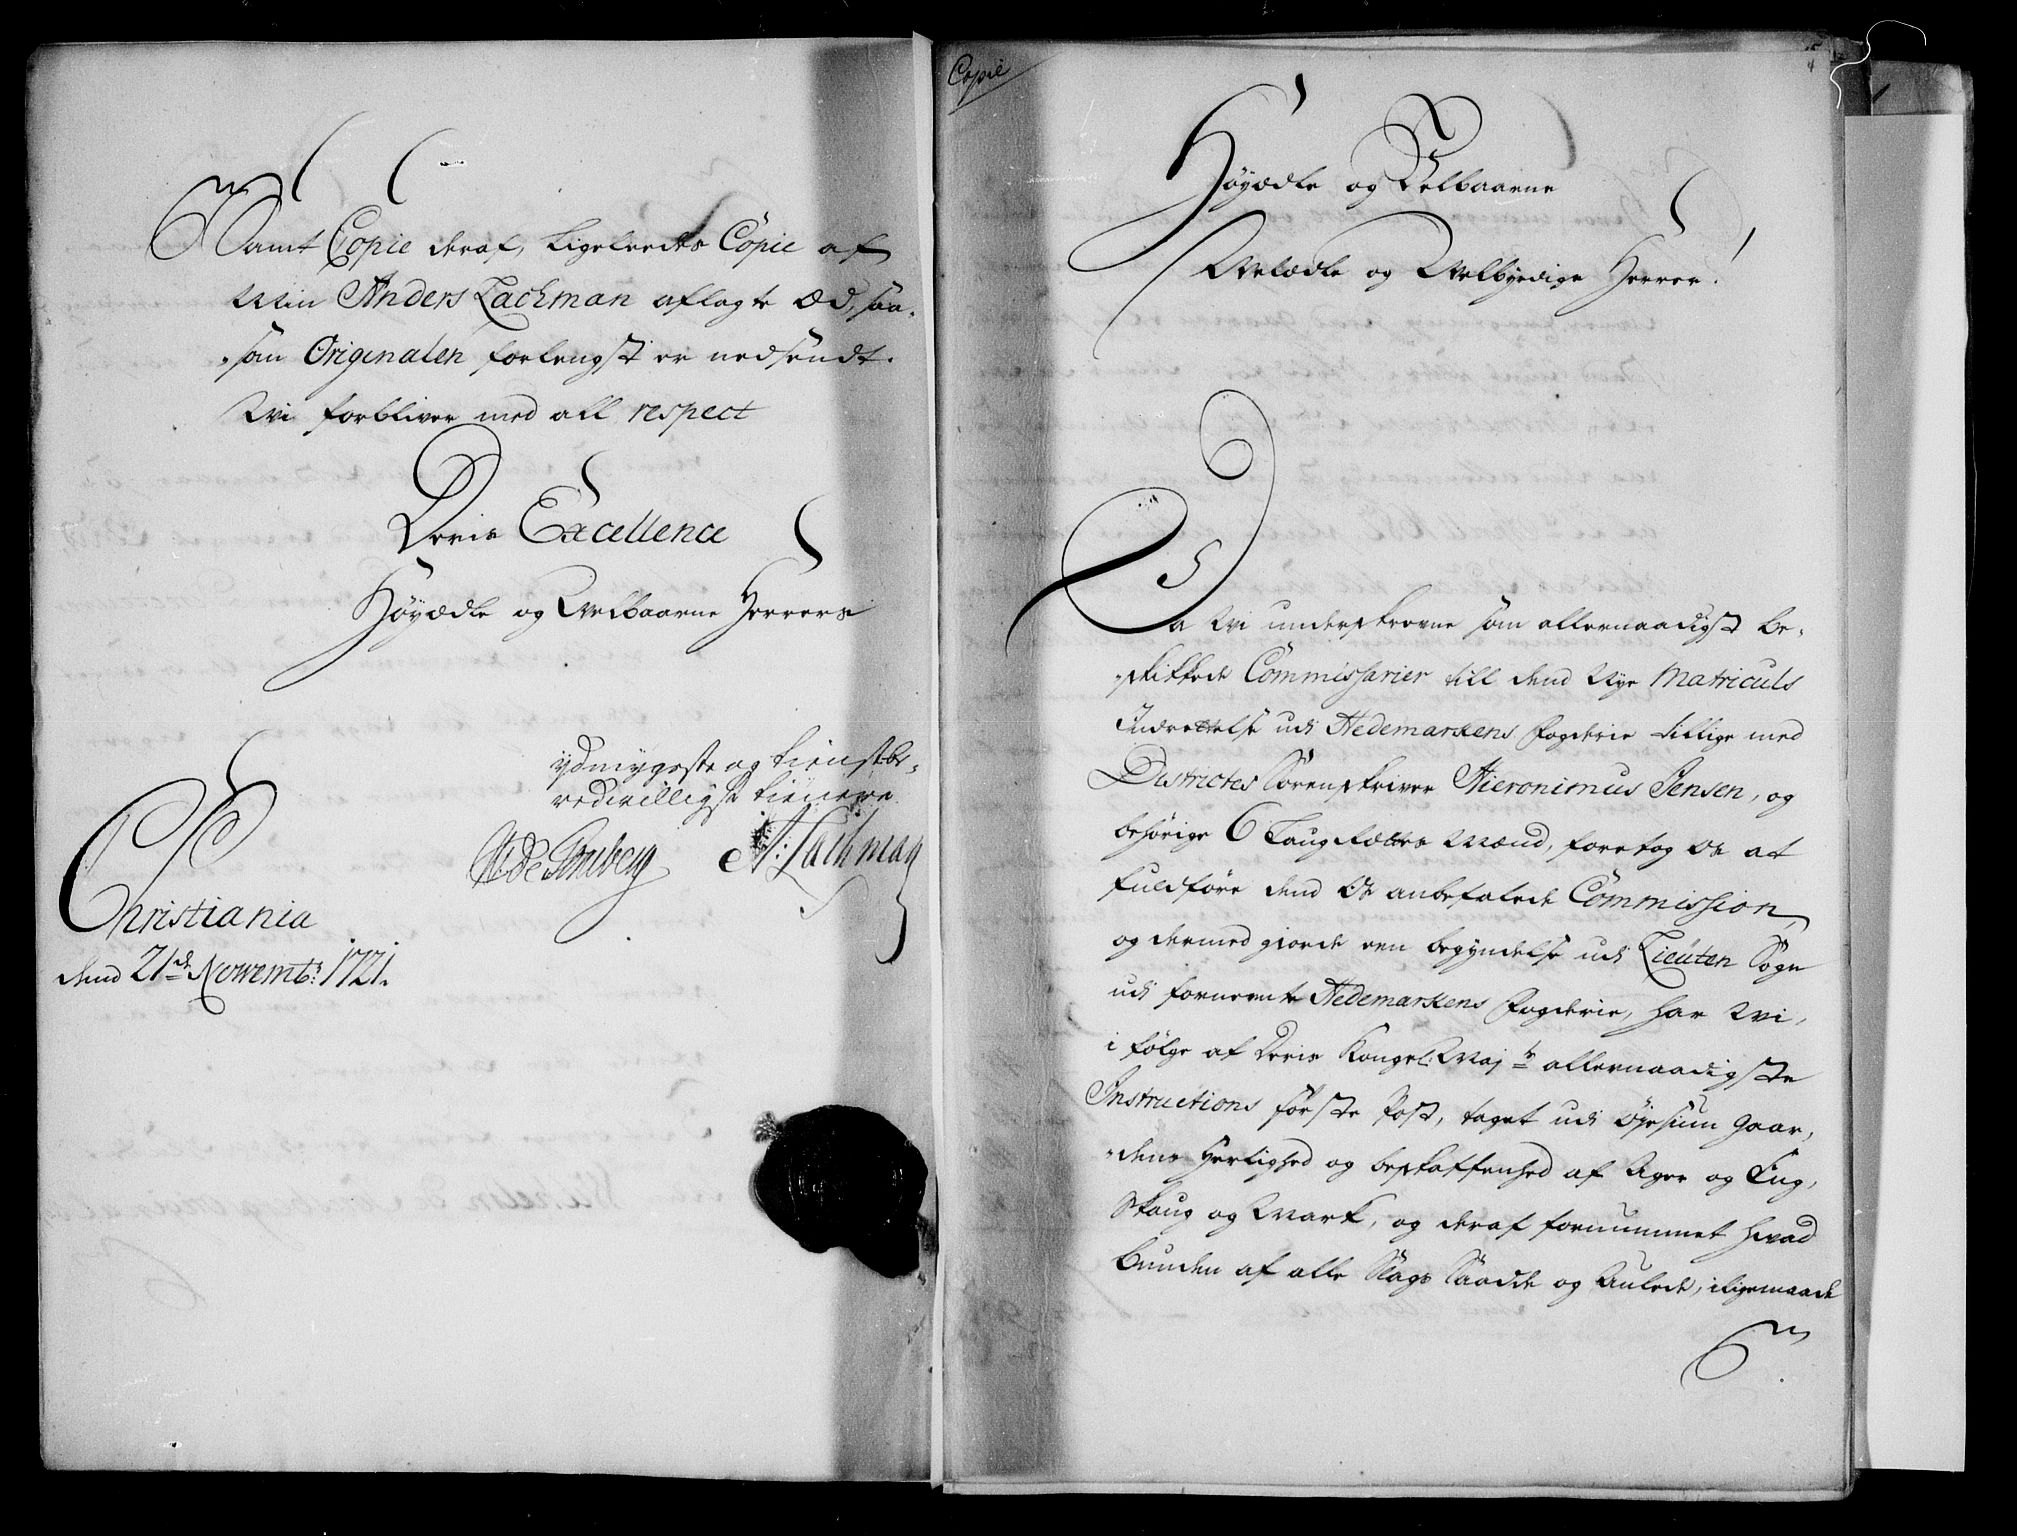 Samt Copie deraf, ligeleedes Copie af
Min Anders Lachman aflagte Æd, saa-
som Originalen forlengst er nedsendt.
Wi forbliver med all respect
Deris Excellence
Høyædle og Welbaarne Herrers
ydmygste og tienstbe-
redvilligste tienere
A: Lachman
Christiania
dend 21de Novembr: 1721.
Copie
Høyædle og Velbaarne
Welædle og Welbyrdige Herrer!
Da Wi underskrevne som allernaadigst be-
skikkede Commissarier till dend Nye Matriculs
Indrettelse udi Hedemarkens fogderie tillige med
Districtes Sorenskriver Hieronimus Jensen, og
behørige 6 Laugrettes Mænd, foretog os at
fuldføre dend os anbefalede Commission,
og dermed giorde een begyndelse udi Lieuten Sogn
udi fornevnte Hedemarkens fogderie, har Wi,
i følge af Deris Kongel: May:ts allernaadigste
Instructions første Post, taget udi Øjesiun Gaar-
dens Herlighed og beskaffenhed af Ager og Eng,
Skoug og Mark, og deraf fornummet hvad
Bunden af alle Slags Sæde og Aulede, iligemaade